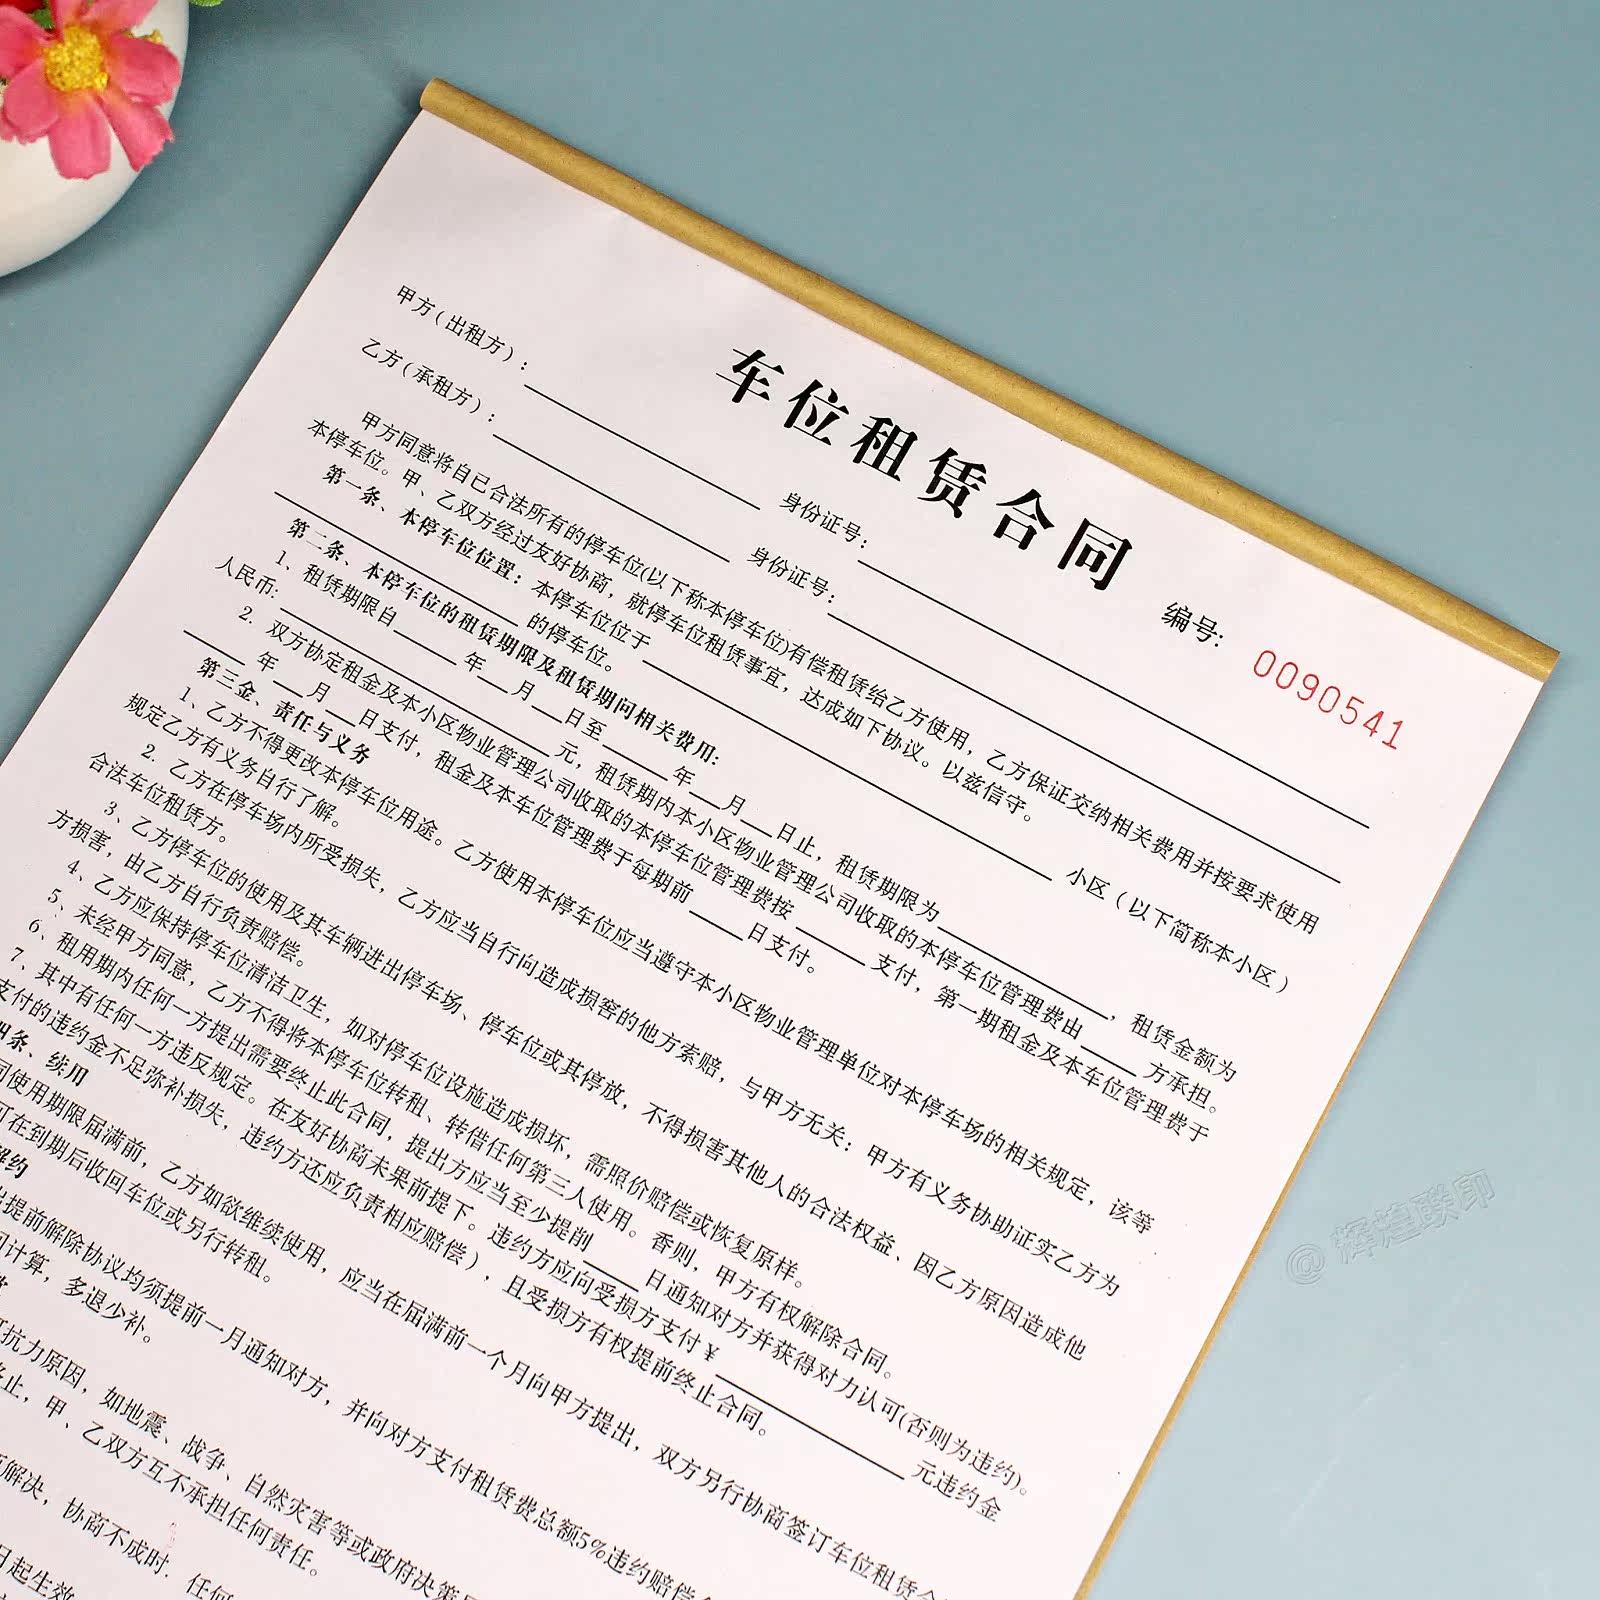 车位租赁合同
编号: 0090541
甲方(出租方): 身份证号:
乙方(承租方): 身份证号:
甲方同意将自已合法所有的停车位(以下称本停车位)有偿租赁给乙方使用，乙方保证交纳相关费用并按要求使用
本停车位。甲、乙双方经过友好协商，就停车位租赁事宜，达成如下协议。以兹信守。
第一条、本停车位位置：本停车位位于 小区（以下简称本小区）
的停车位。
第二条、本停车位的租赁期限及租赁期问相关费用:
1、租赁期限自 年 月 日至 年 月 日止，租赁期限为 ，租赁金额为
人民币: 元，租赁期内本小区物业管理公司收取的本停车位管理费由 方承担。
2. 双方协定租金及本小区物业管理公司收取的本停车位管理费按 支付，第一期租金及本车位管理费于
年 月 日支付，租金及本车位管理费于每期前 日支付。
第三金、责任与义务
1、乙方不得更改本停车位用途。乙方使用本停车位应当遵守本小区物业管理单位对本停车场的相关规定，该等
规定乙方有义务自行了解。
2. 乙方在停车场内所受损失，乙方应当自行问造成损窖的他方索赔，与甲方无关；甲方有义务协助证实乙方为
合法车位租赁方。
3、乙方停车位的使用及其车辆进出停车场、停车位或其停放，不得损害其他人的合法权益、因乙方原因造成他
方损害，由乙方自行负责赔偿。
4、乙方应保持停车位清洁卫生，如对停车位设施造成损坏，需照价赔偿或恢复原样。
5、未经甲方同意，乙方不得将本停车位转租、转借任何第三人使用。香则，甲方有权解除合同。
6、租用期内任何一方提出需要终止此合同，提出方应当至少提削 日通知对方并获得对力认可(否则为违约)。
7、其中有任何一方违反规定。在友好协商未果前提下。违约方应向受损方支付¥ 元违约金
支付的违约金不足弥补损失，违约方还应负责相应赔偿），且受损方有权提前终止合同。
四条、续川
同使用期限届满前，乙方如欲维续使用，应当在届满前一个月向甲方提出，双方另行协商签订车位租赁合
可在到期后收回车位或另行转租。
解约
出提前解除协议均须提前一月通知对方，并向对方支付租赁费总额5%违约赔偿金
同计算，多退少补。
可抗力原因，如地震、战争、自然灾害等或政府决策
终止，甲、乙双方互不承担任何责任。
解决，协商不成时. 任何
日起生效
@辉煌联印